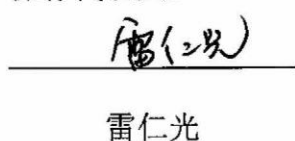 雷仁光
雷仁光